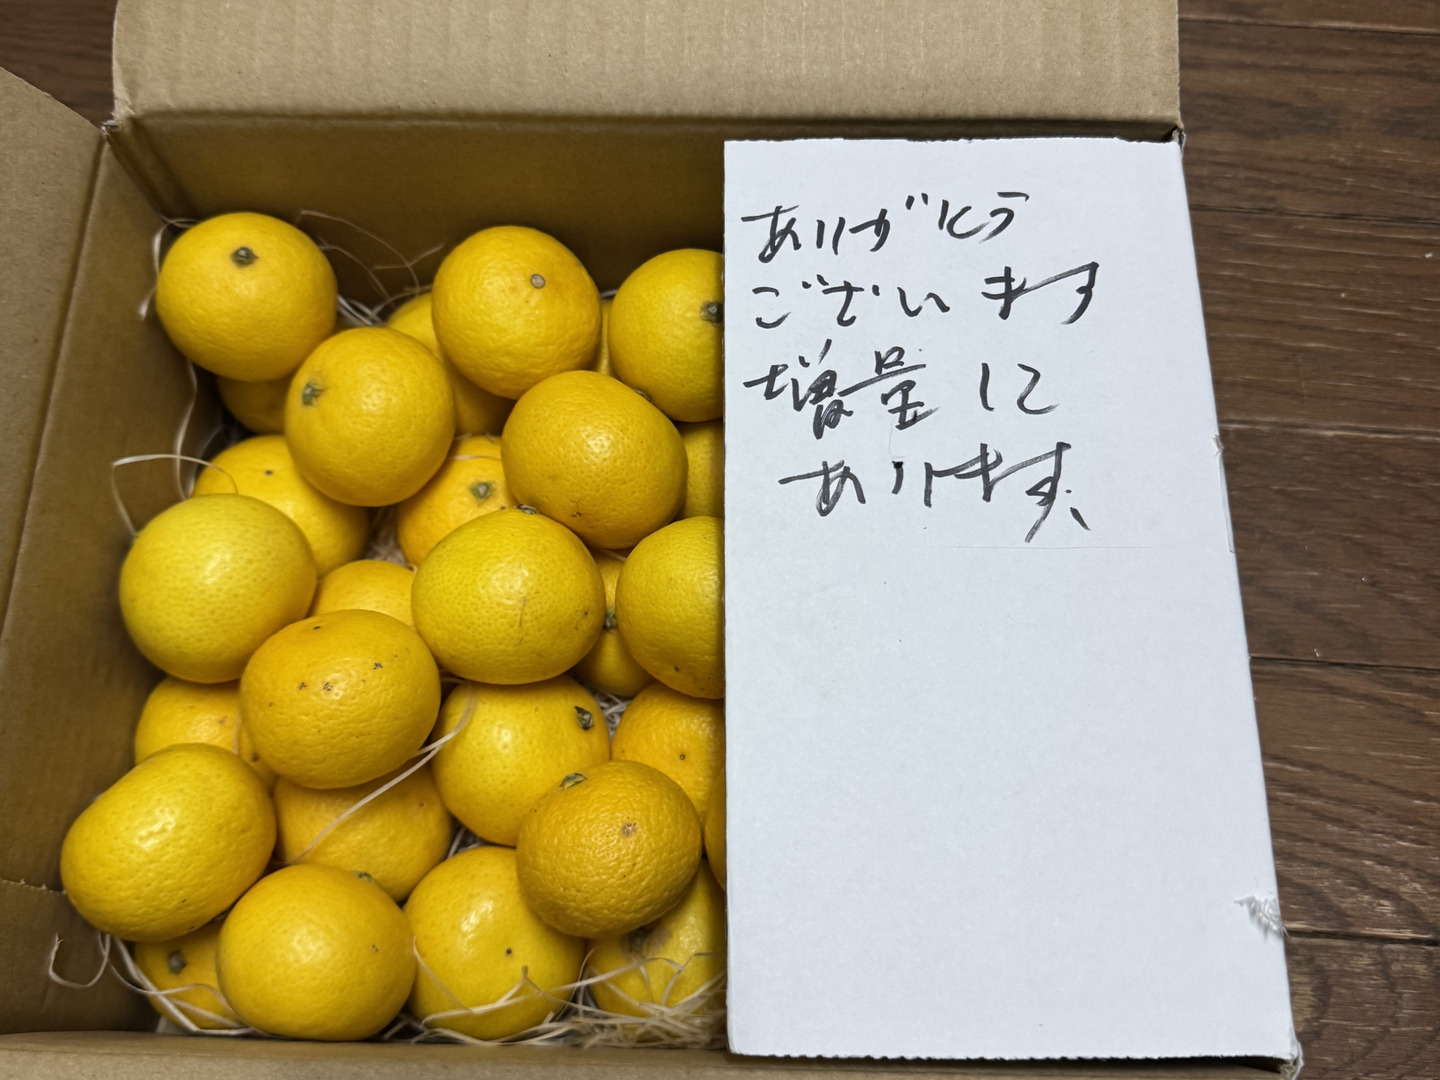 ありがとう
ございます
増量に
あります、